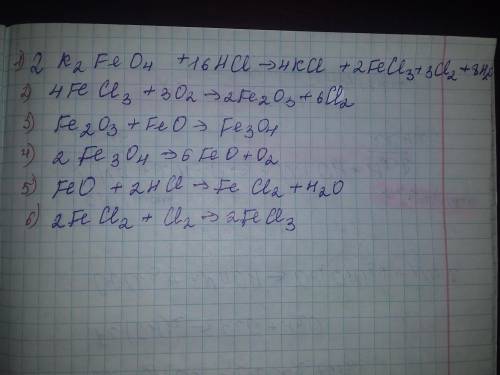 1) 2 K2FeO4 + 16HCl → 4KCl + 2FeCl3 + 3Cl2 + 8H2
2) 4FeCl3 + 3O2 → 2Fe2O3 + 6Cl2
3) Fe2O3 + FeO → Fe3O4
4) 2Fe3O4 → 6FeO + O2
5) FeO + 2HCl → FeCl2 + H2O
6) 2FeCl2 + Cl2 → 2FeCl3